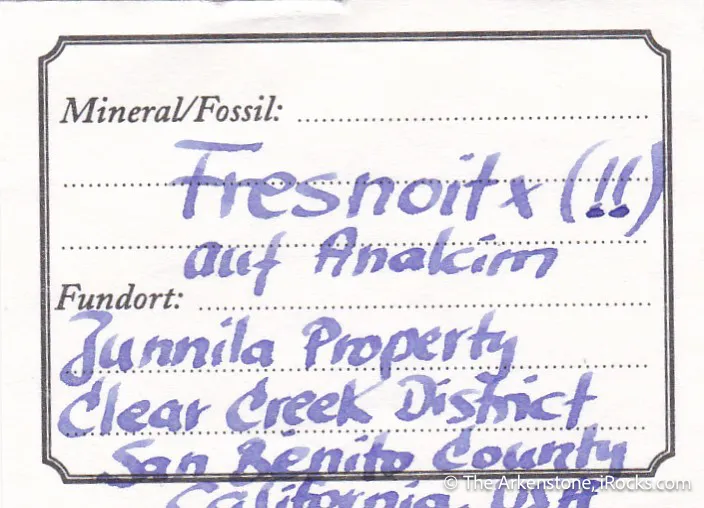 Mineral/Fossil:
Fresnoitx (!!)
auf Analcim
Fundort:
Junnila Property
Clear Creek District
San Benito County
California, USA
© The Arkenstone, iRocks.com